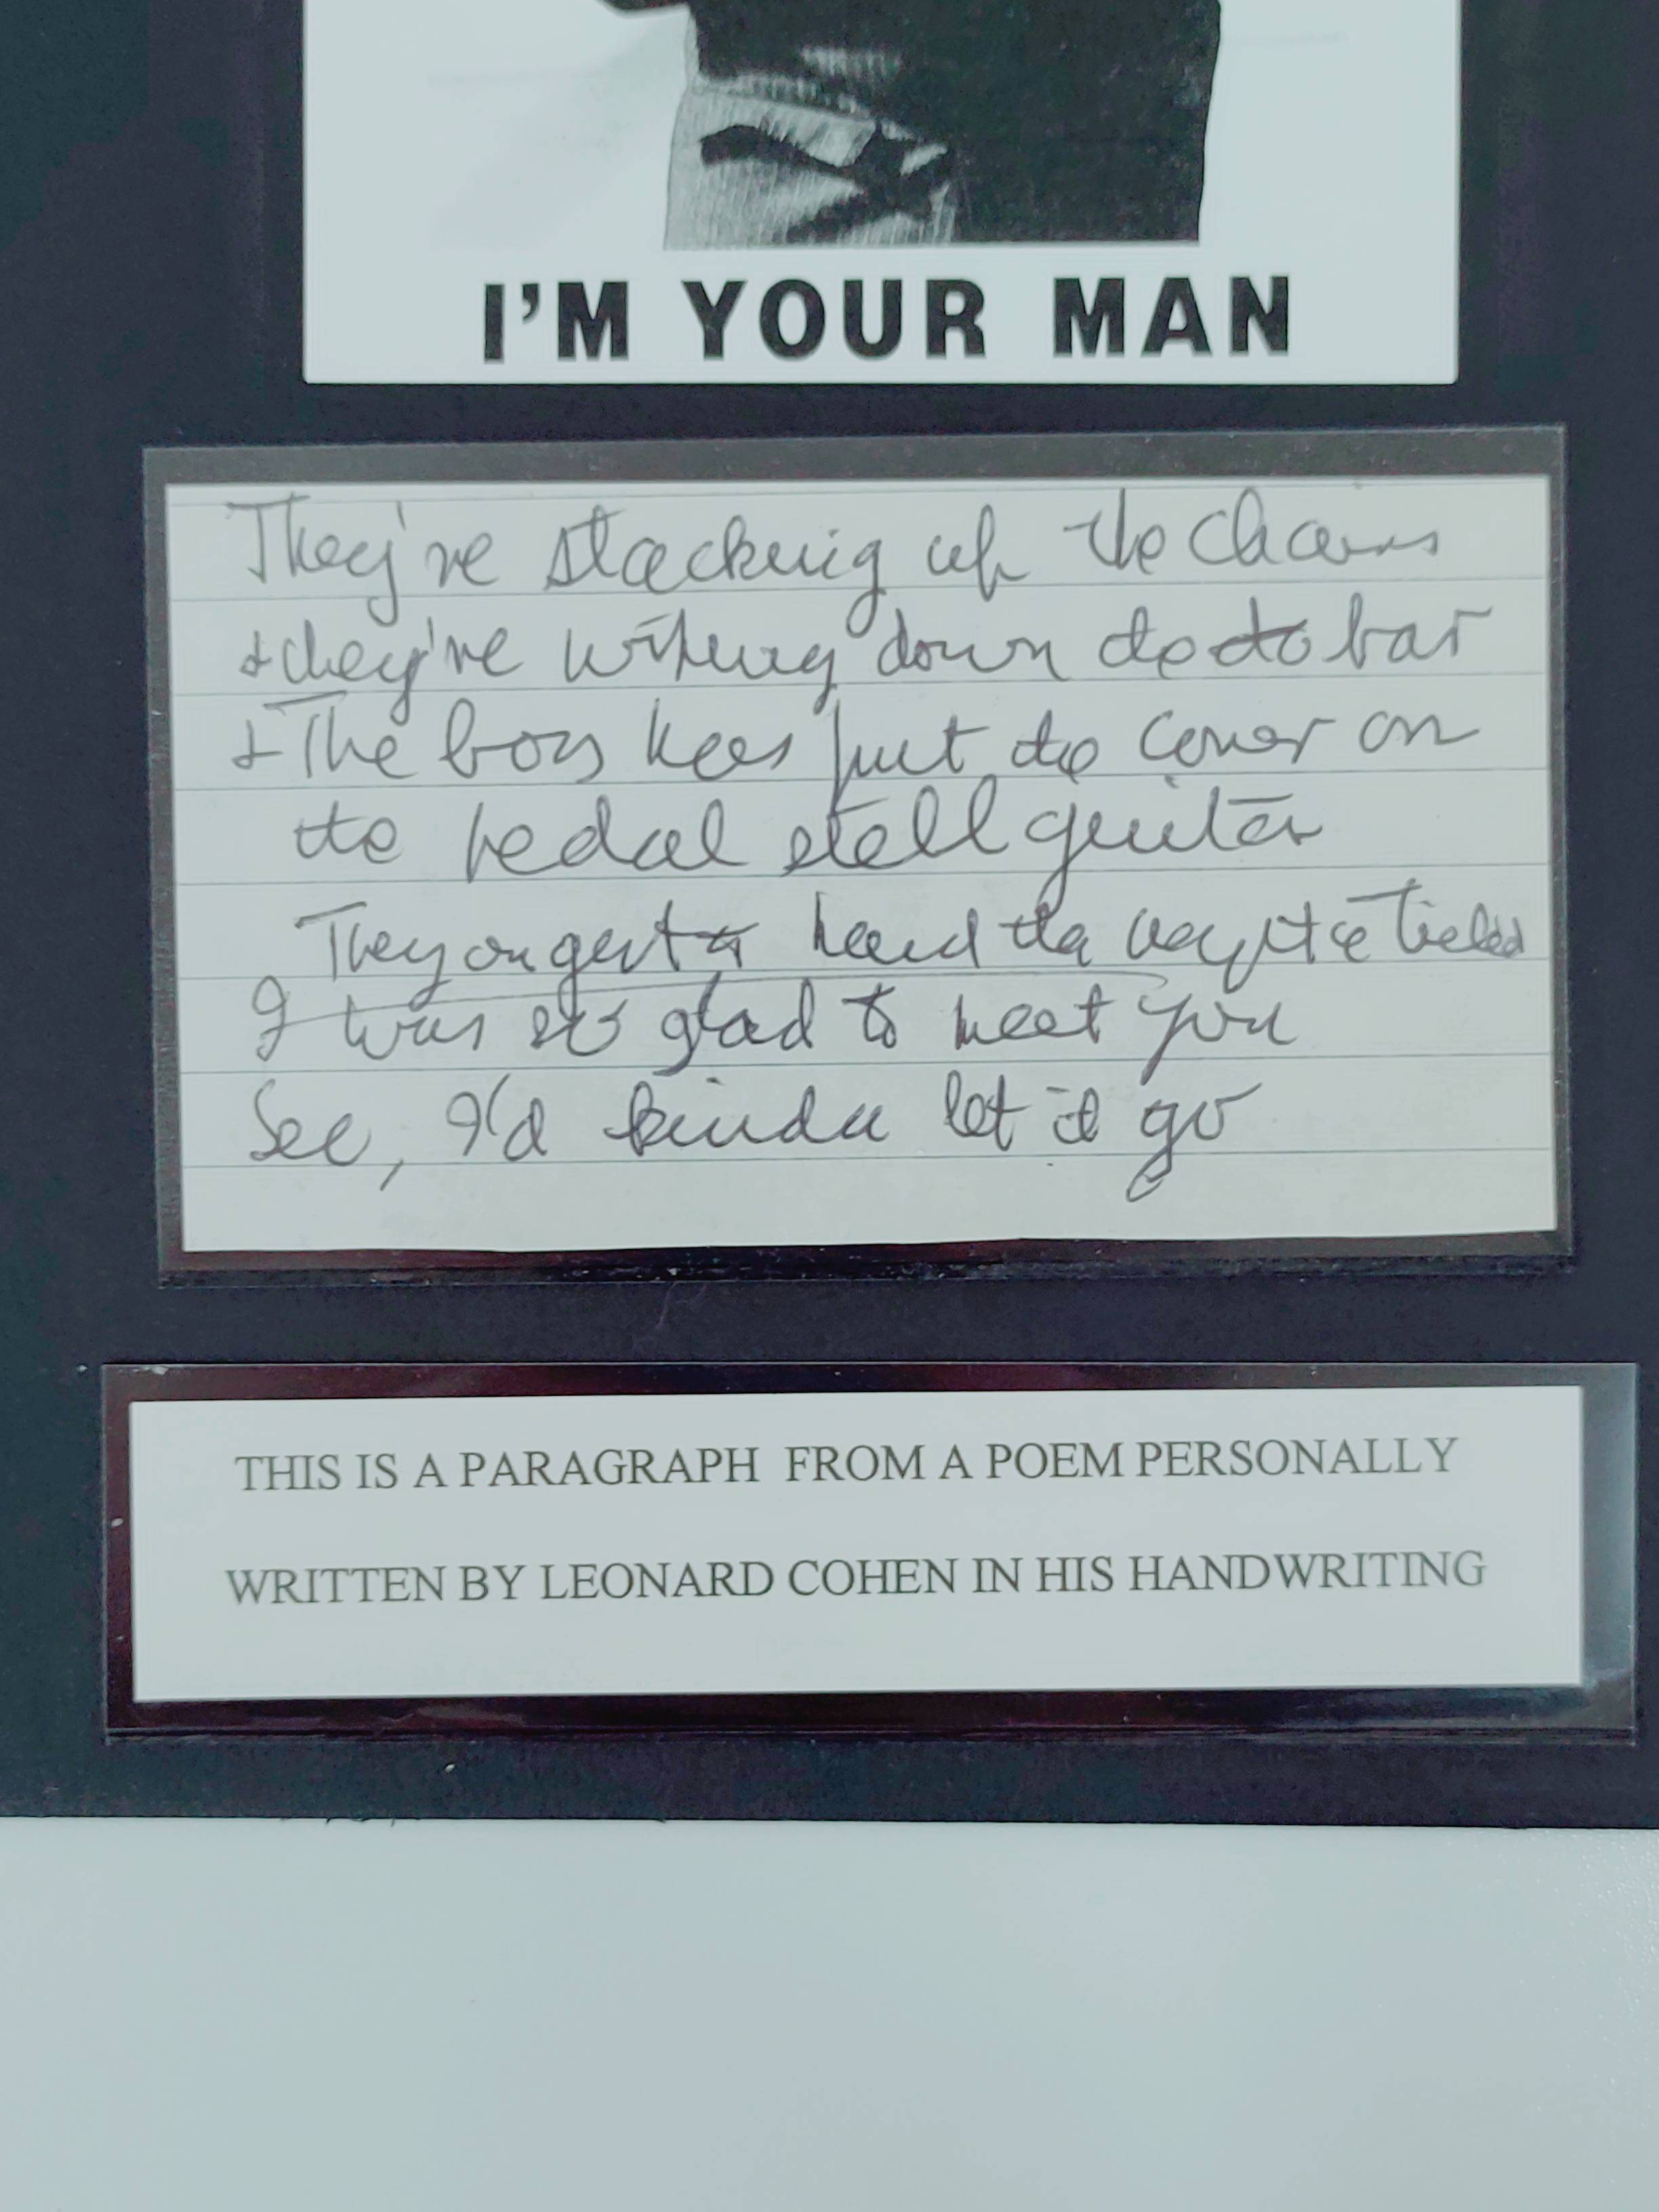 I'M YOUR MAN
They're stacking up the chairs
& they're wiping down the bar
& The boy has put the cover on
the pedal stell guitar
They
I was so glad to meet you
See, I'd kinda let it go
THIS IS A PARAGRAPH FROM A POEM PERSONALLY
WRITTEN BY LEONARD COHEN IN HIS HANDWRITING